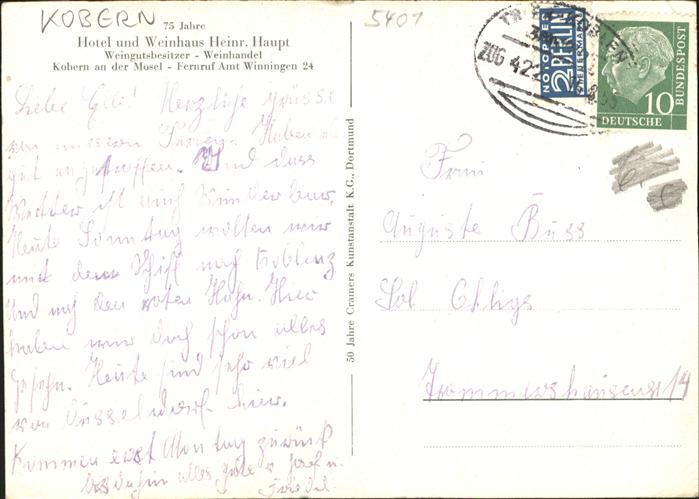 KOBERN
5401
75 Jahre
Hotel und Weinhaus Heinr. Haupt
Weingutsbesitzer - Weinhandel
Kobern an der Mosel - Fernruf Amt Winningen 24
Liebe Herzliche Grüsse
von unseren Ferien. Haben es
gut angetroffen. Und das
Wetter ist auch wunderbar.
Heute Sonntag wollten wir
mit dem Schiff nach Koblenz
und auf den roten Hahn. Hier
haben wir doch schon alles
gesehn. Heute sind sehr viel
von Düsseldorf hier.
Kommen erst Montag zurück
bis dahin alles gute v. Josef u.
50 Jahre Cramers Kunstanstalt K.G., Dortmund
ZUG 422
NOTOPFER
2 BERLIN
STEUERMARKE
10
DEUTSCHE
BUNDESPOST
Frau
Auguste Buss
Sol Ohligs
14